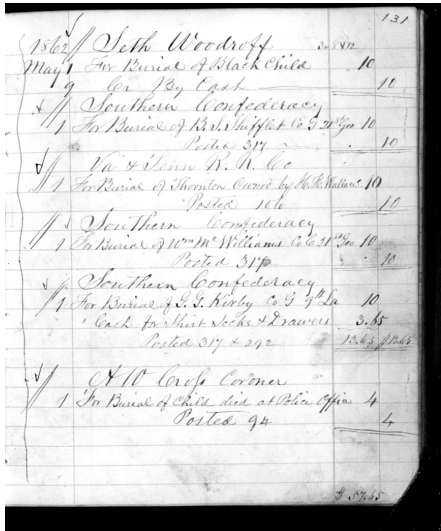 131
1862 Seth Woodroff
May 1 For Burial of Black Child 10
9 Cr By Cash 10
Southern Confederacy
1 For Burial of B.S. Shifflet Co G 21st Geo 10
Posted 317 10
Va & Tenn R. R. Co
1 For Burial of Thornton Owned by Wallace 10
Posted 106 10
Southern Confederacy
1 For Burial of Wm McWilliams Co C 21st Geo 10
Posted 317 10
Southern Confederacy
1 For Burial of G. G. Kirby Co G 9th La 10
" Cash for Shirt Socks & Drawers 3.65
Posted 317 & 292 13.65 13.65
A W Cross Coroner
1 For Burial of Child died at Police Office 4
Posted 94 4
$ 57.65